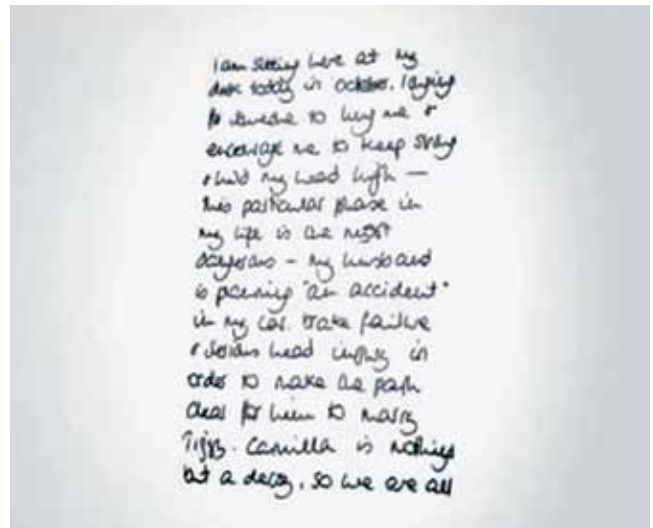 I am sitting here at my
desk today in October, longing
for someone to hug me &
encourage me to keep strong
& hold my head high —
this particular phase in
my life is the most
dangerous – my husband
is planning "an accident"
in my car. brake failure
& serious head injury in
order to make the path
clear for him to marry
Tiggy. Camilla is nothing
but a decoy, so we are all